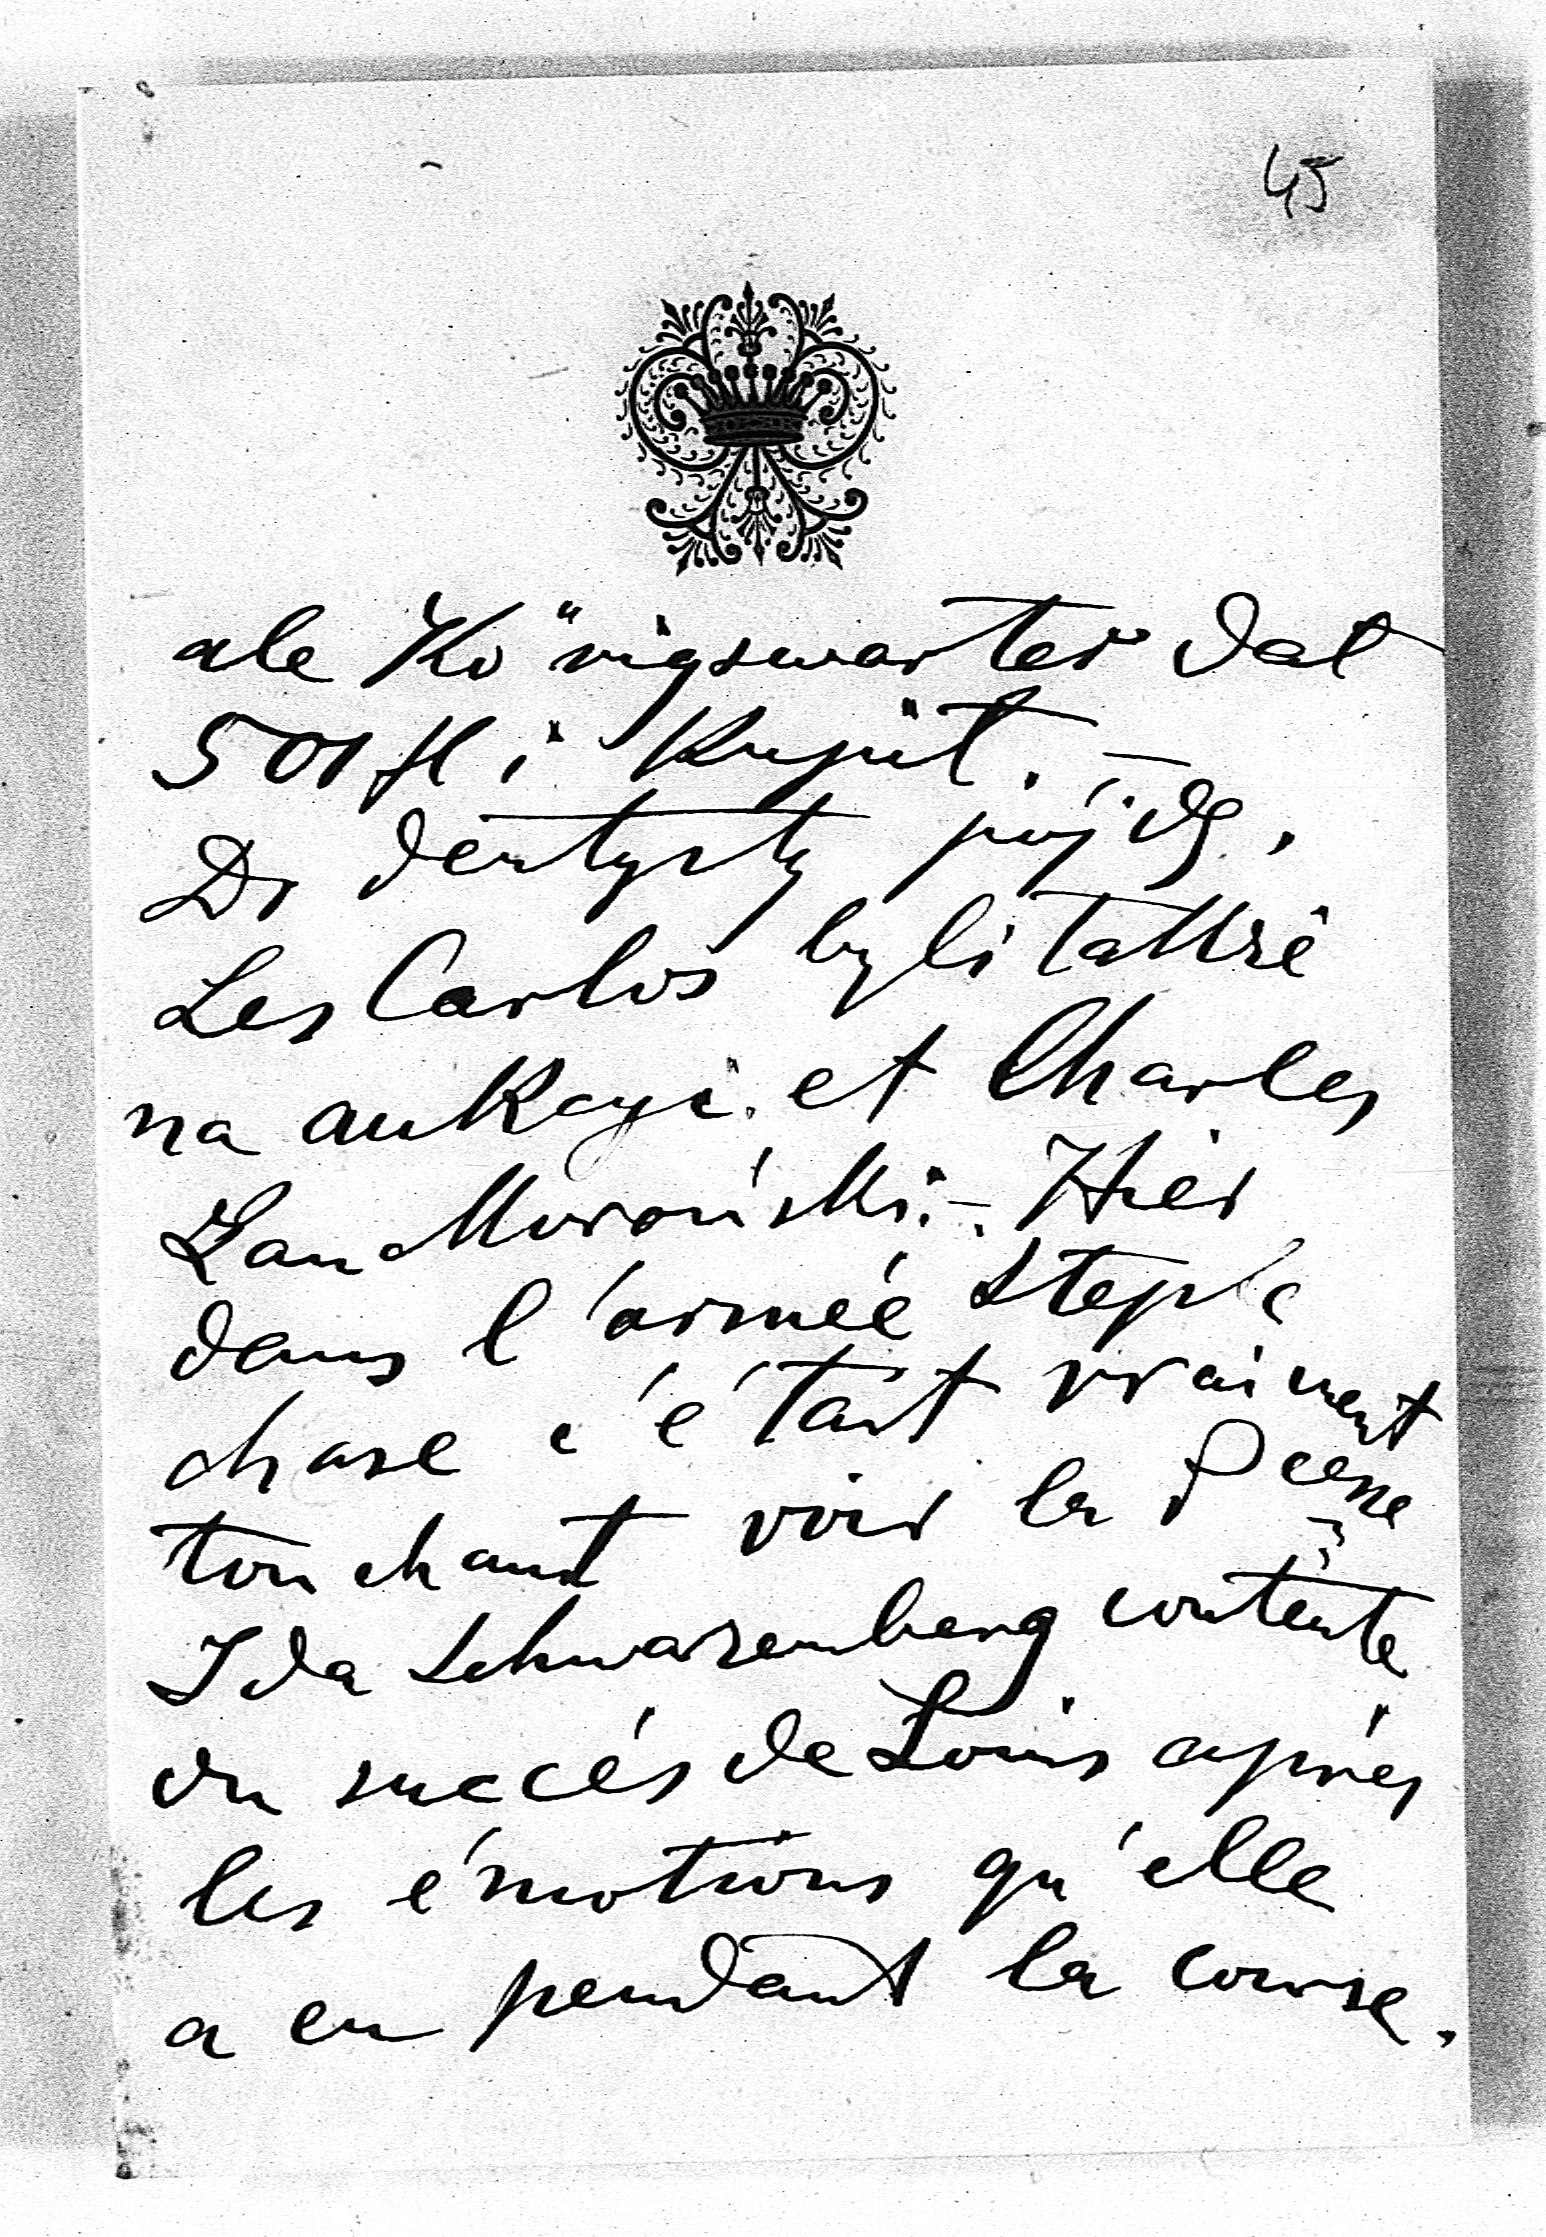 45
ale Königswarter dał
501 fl i kupił. —
Do dentysty pójdę.
Les Carlos byli także
na aukcyi et Charles
Lanckoroński. — Hier
dans l'armée Steple
chase c'était vraiment
touchant voir la Pcesse
Ida Schwarzenberg contente
du succés de Louis aprés
les émotions qu'elle
a eu pendant la course.